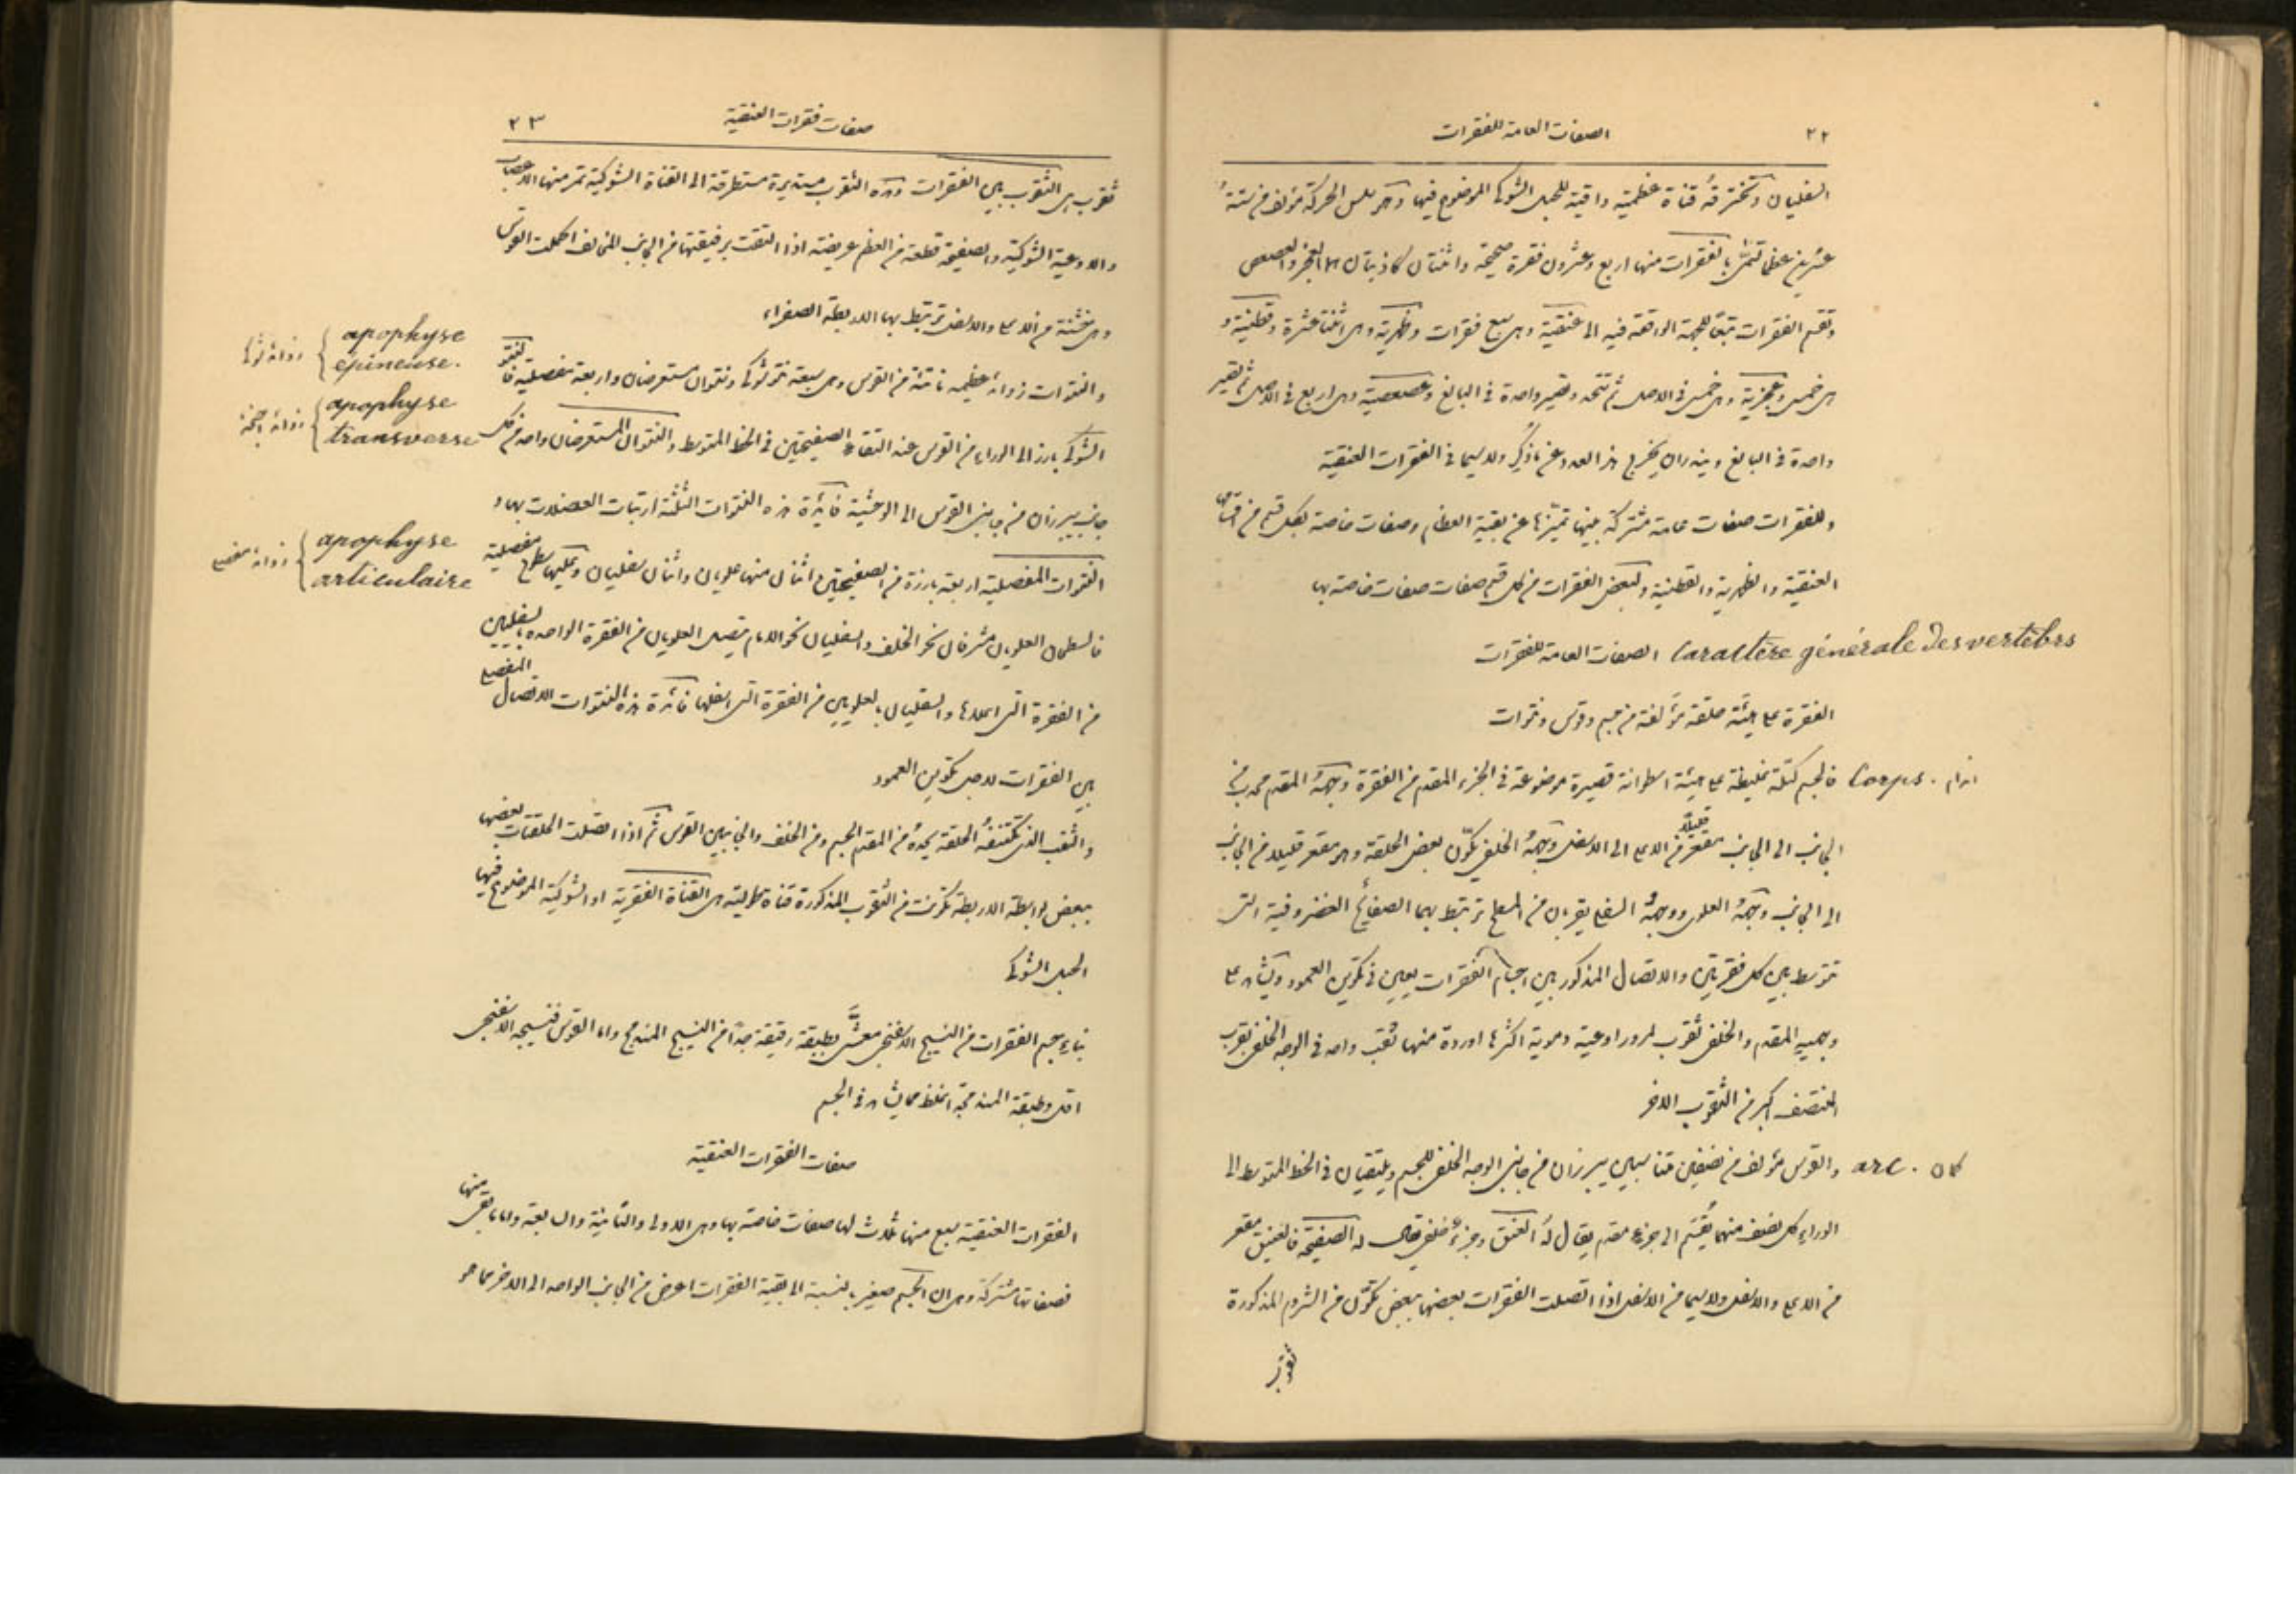 ٢٢
الصفات العامة للفقرات
السفليان وتخترقهُ قناة عظمية واقية للحبل الشوكي الموضوع فيها وهو سلس الحركة مؤلف من ستة و
عشرين عظما تسمّى بالفقرات منها اربع وعشرون فقرة صحيحة واثنتان كاذبتان هما العجز والعصعص
وتقسم الفقرات تبعًا للجهة الواقعة فيه الى عنقية وهى سبع فقرات وظهرية وهى اثنتا عشرة وقطنية و
هى خمس وعجزية وهى خمس فى الاصل ثم تتحد وتصير واحدة فى البالغ وعصعصية وهى اربع فى الاصل ثم تصير
واحدة فى البالغ ويندر ان يخرج هذا العدد عن ما ذُكِر ولا سيما فى الفقرات العنقية
وللفقرات صفات عامة مشتركة بينها تميّزها عن بقية العظام وصفات خاصة بكل قسم من اقسامها
العنقية والظهرية والقطنية ولبعض الفقرات من كل قسم صفات صفات خاصة بها
Caractère générale Des vertèbrs الصفات العامة للفقرات
الفقرة على هيئة حلقة مؤلفة من جسم وقوس ونتوات
اندام . Corps فالجسم كتلة غليظة على هيئة اسطوانة قصيرة موضوعة فى الجزء المقدم من الفقرة وجههُ المقدم محدب من
الجانب الى الجانب مقعر قليلًا من الاعلى الى الاسفل ووجههُ الخلفى يكوّن بعض الحلقة وهو مقعر قليلا من الجانب
الى الجانب ووجههُ العلوى ووجههُ السفلى يقربان من المسطح ترتبط بهما الصفائح الغضروفية التى
تتوسط بين كل فقرتين والاتصال المذكور بين اجسام الفقرات يعين فى تكوين العمود ويشاهد على
وجهيهِ المقدم والخلفى ثقوب لمرور اوعية دموية اكثرها اوردة منها ثقب واحد فى الوجه الخلفى بقرب
المنتصف اكبر من الثقوب الاخر
كمان . arc والقوس مؤلف من نصفين متناسبين يبرزان من جانبى الوجه الخلفى للجسم ويلتقيان فى الخط المتوسط الى
الوراء كل نصف منهما يُقسَم الى جزء مقدم يقال لهُ العنق وجزء خلفى يقال له الصفيحة فالعنيق مقعر
من الاعلى والاسفل ولا سيما من الاسفل اذا اتصلت الفقرات بعضها ببعض تكوّن من الشروم المذكورة
ثقوب
صفات فقرات العنقية
٢٣
ثقوب هى الثقوب بين الفقرات وهذه الثقوب مستديرة مستطرقة الى القناة الشوكية تمر منها الاعصاب
والاوعية الشوكية والصفيحة قطعة من العظم عريضة اذا التقت برفيقتها من الجانب المخالف اكملت القوس
وهى خشنة من الاعلى والاسفل ترتبط بها الاربطة الصفراء
والنتوات زوائد عظيمة ناتئة من القوس وهى سبعة نتو شوكى ونتوان مستعرضان واربعة مفصلية فالنتو
الشوكى بارز الى الوراء من القوس عند التقاء الصفيحتين فى الخط المتوسط والنتوان المستعرضان واحد من كل
جانب يبرزان من جانبى القوس الى الوحشية فائدة هذه النتوات الثلثة ارتباط العضلات بها و
النتوات المفصلية اربعة بارزة من الصفيحتين اثنان منها علويان واثنان سفليان وعليها سطوح مفصلية
فالسطحان العلويان مشرفان نحو الخلف والسفليان نحو الامام يتصل العلويان من الفقرة الواحدة بالسفليين
من الفقرة التى اعلاها والسفليان بالعلويين من الفقرة التى اسفلها فائدة هذه النتوات الاتصال المفصلى
بين الفقرات لاجل تكوين العمود
والثقب الذى تكتنفهُ الحلقة يحدهُ من المقدم الجسم ومن الخلف والجانبين القوس ثم اذا اتصلت الحلقات بعضها
ببعض بواسطة الاربطة تكونت من الثقوب المذكورة قناة طولية هى القناة الفقرية او الشوكية الموضوع فيها
الحبل الشوكى
بناء جسم الفقرات من النسيج الاسفنجى مغشًّى بطبقة رقيقة جدًا من النسيج المندمج واما القوس فنسيجه الاسفنجى
اقل وطبقة المندمجة اغلظ مما يشاهد فى الجسم
صفات الفقرات العنقية
الفقرات العنقية سبع منها ثلاث لها صفات خاصة بها وهى الاولى والثانية والسابعة واما ما بقى منها
فصفاتها مشتركة وهى ان الجسم صغير بالنسبة الى بقية الفقرات اعرض من الجانب الواحد الى الاخر مما هو
apophyse
épineuse.
apophyse
transverse
apophyse
articulaire